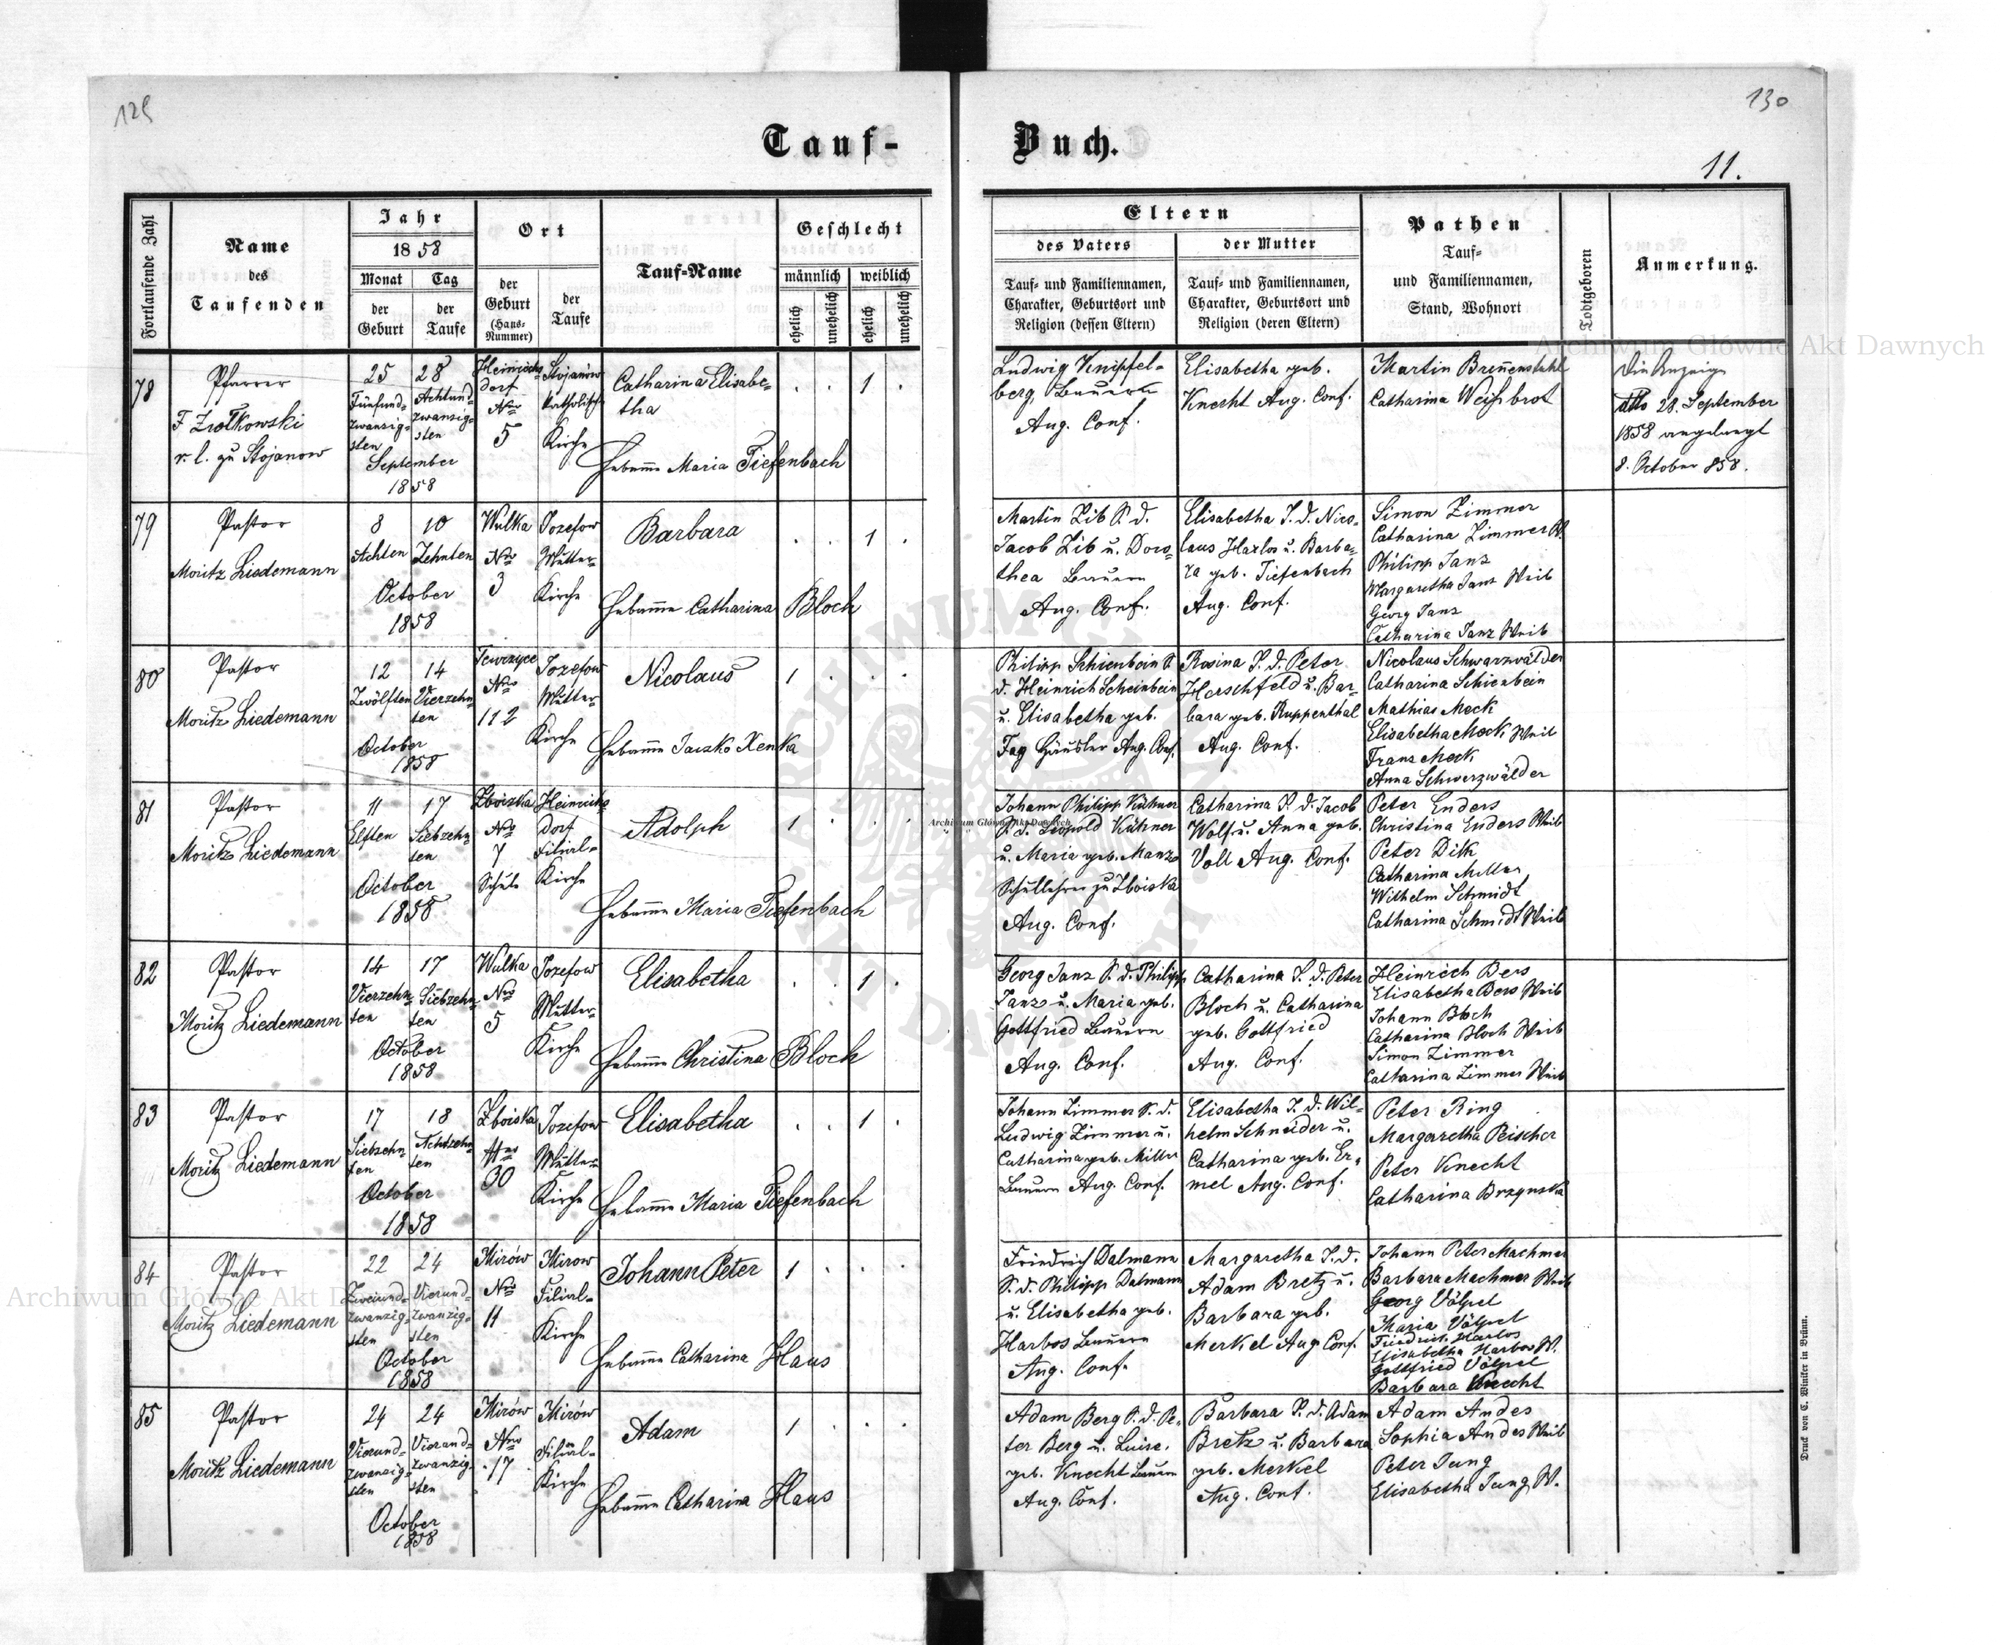 129
130
Tauf-
Buch.
11.
Fortlaufende Zahl
Name
des
Taufenden
Jahr
1858
Monat
Tag
der
Geburt
der
Taufe
Ort
der
Geburt
(Haus-
Nummer)
der
Taufe
Tauf-Name
Geschlecht
männlich
weiblich
ehelich
unehelich
ehelich
unehelich
Eltern
des Vaters
der Mutter
Tauf- und Familiennamen,
Charakter, Geburtsort und
Religion (dessen Eltern)
Tauf- und Familiennamen,
Charakter, Geburtsort und
Religion (deren Eltern)
Pathen
Tauf-
und Familiennamen,
Stand, Wohnort
Todtgeboren
Anmerkung.
78
Pfarrer
F Ziolkowski
r. l. zu Stojanow
25
Fünfund-
zwanzig-
sten
28
Achtund-
zwanzig-
sten
September
1858
Heinrichs-
dorf
Nro
5
Stojanow
Katholische
Kirche
Catharina Elisabe-
tha
Hebamme Maria Tiefenbach
. . 1 .
Ludwig Knipfel-
berg, Bauern
Aug. Conf.
Elisabetha geb.
Knecht Aug. Conf.
Martin Breñenstuhl
Catharina Weißbrot
Die Anzeige
dtto 28. September
1858 angelangt
8. October 858.
79
Pastor
Moritz Liedemann
8
Achten
10
Zehnten
October
1858
Wulka
Nro
3
Jozefow
Mutter-
Kirche
Barbara
Hebamme Catharina Bloch
. . 1 .
Martin Lib S. d.
Jacob Lib u. Doro-
thea Bauern
Aug. Conf.
Elisabetha T. d. Nico-
laus Harlos u. Barba-
ra geb. Tiefenbach
Aug. Conf.
Simon Zimmer
Catharina Zimmer W.
Philipp Janz
Margaretha Janz Weib
Georg Janz
Catharina Janz Weib
80
Pastor
Moritz Liedemann
12
Zwölften
14
Vierzehn-
ten
October
1858
Nro
112
Jozefow
Mutter-
Kirche
Nicolaus
Hebamme Jaszko Xenka
1 . . .
Philipp Schienbein S.
d. Heinrich Scheinbein
u. Elisabetha geb.
Fey Häusler Aug. Conf.
Rosina T. d. Peter
Herschfeld u. Bar-
bara geb. Ruppenthal
Aug. Conf.
Nicolaus Schwarzwälder
Catharina Schienbein
Mathias Mock
Elisabetha Mock Weib
Franz Mock
Anna Schwerzwälder
81
Pastor
Moritz Liedemann
11
Elften
17
Siebzehn-
ten
October
1858
Zboiska
Nro
7
Schule
Heinrichs-
dorf
Filial-
Kirche
Adolph
Hebamme Maria Tiefenbach
1 . . .
Johann Philipp Kühner
S. d. Leopold Kühner
u. Maria geb. Manz
Schullehrer zu Zboiska
Aug. Conf.
Catharina T. d. Jacob
Wolf u. Anna geb.
Voll Aug. Conf.
Peter Enders
Christina Enders Weib
Peter Dilk
Catharina Miller
Wilhelm Schmidt
Catharina Schmidt Weib
82
Pastor
Moritz Liedemann
14
Vierzehn-
ten
17
Siebzehn-
ten
October
1858
Wulka
Nro
5
Jozefow
Mutter-
Kirche
Elisabetha
Hebamme Christina Bloch
. . 1 .
Georg Janz S. d. Philipp
Janz u. Maria geb.
Gottfried Bauern
Aug. Conf.
Catharina T. d. Peter
Bloch u. Catharina
geb. Gottfried
Aug. Conf.
Heinrich Bers
Elisabetha Bers Weib
Johann Bloch
Catharina Bloch Weib
Simon Zimmer
Catharina Zimmer Weib
83
Pastor
Moritz Liedemann
17
Siebzehn-
ten
18
Achtzehn-
ten
October
1858
Zboiska
Nro
30
Jozefow
Mutter-
Kirche
Elisabetha
Hebamme Maria Tiefenbach
. . 1 .
Johann Zimmer S. d.
Ludwig Zimmer u.
Catharina geb. Miller
Bauern Aug. Conf.
Elisabetha T. d. Wil-
helm Schneider u.
Catharina geb. Er-
mel Aug. Conf.
Peter Ring
Margaretha Peischer
Peter Knecht
Catharina Brzynska
84
Pastor
Moritz Liedemann
22
Zweiund-
zwanzig-
sten
24
Vierund-
zwanzig-
sten
October
1858
Mirów
Nro
11
Mirow
Filial-
Kirche
Johann Peter
Hebamme Catharina Haus
1 . . .
Friedrich Dalmann
S. d. Philipp Dalmann
u. Elisabetha geb.
Harbos Bauern
Aug. Conf.
Margaretha T. d.
Adam Bretz u.
Barbara geb.
Merkel Aug Conf.
Johann Peter Machmer
Barbara Machmer Weib
Georg Völpel
Maria Völpel
Friedrich Harlos
Elisabetha Harbos W.
Gottfried Völpel
Barbara Knecht
85
Pastor
Moritz Liedemann
24
Vierund-
zwanzig-
sten
24
Vierand-
zwanzig-
sten
October
1858
Mirów
Nro
17
Mirów
Filial-
Kirche
Adam
Hebamme Catharina Haus
1 . . .
Adam Berg S. d. Pe-
ter Berg u. Luise.
geb. Knecht Bauern
Aug. Conf.
Barbara T. d. Adam
Bretz u. Barbara
geb. Merkel
Aug. Conf.
Adam Andes
Sophia Andes Weib
Peter Jung
Elisabetha Jung W.
Druck von C. Winiker in Brünn.
Archiwum Główne Akt Dawnych
Archiwum Główne Akt Dawnych
Archiwum Główne Akt Dawnych